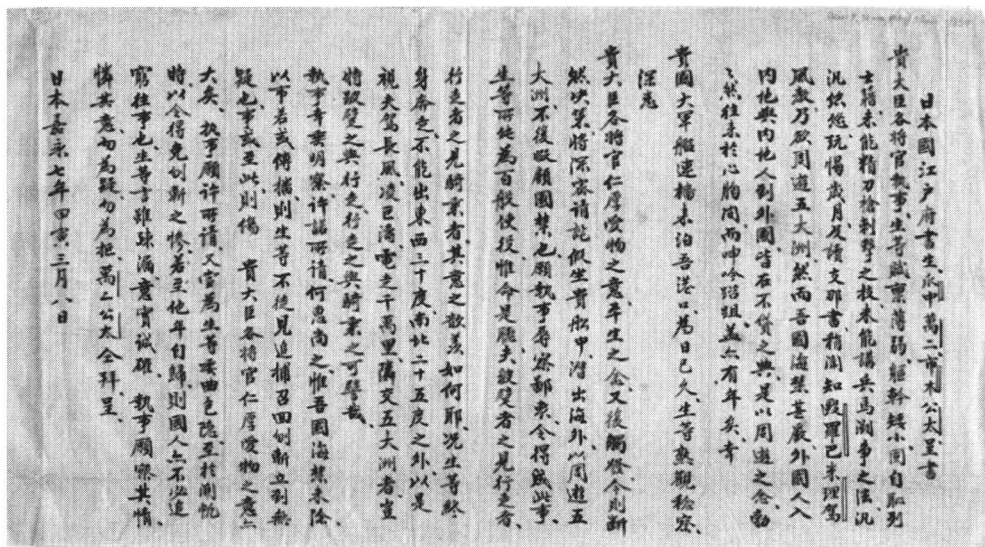 日本國江戸府書生瓜中萬二市木公太呈書
貴大臣各將官執事、生等賦稟薄弱、軀幹矮小、固自恥列
士籍、未能精刀槍刺擊之技、未能講兵馬鬪爭之法、汎
汎悠悠玩愒歲月、及讀支那書、稍聞知歐羅巴米理駕
風教、乃欲周遊五大洲、然而吾國海禁甚嚴、外國人入
内地、與内地人到外國、皆在不貸之典、是以周遊之念、勃
々然往来於心胸間、而呻吟趑趄、蓋亦有年矣、幸
貴國大軍艦連檣来泊吾港口、為日已久、生等熟觀稔察、
深悉
貴大臣各將官仁厚愛物之意、平生之念、又復觸發、今則斷
然决策、將深密請託、假坐貴舶中、潛出海外、以周遊五
大洲、不復顧國禁也、願執事辱察鄙衷、令得成此事、
生等所能為、百般使役、惟命是聽、夫跛躄者之見行走者、
行走者之見騎乘者、其意之歆羨如何耶、況生等終
身奔走、不能出東西三十度、南北二十五度之外、以是
視夫駕長風、凌巨濤、電走千萬里、隣交五大洲者、豈
特跛躄之與行走、行走之與騎乘之可譬哉、
執事幸垂明察、許諾所請、何惠尚之、惟吾國海禁未除、
此事若或傳播、則生等不徒見追捕召回、刎斬立到無
疑也、事或至此、則傷 貴大臣各將官仁厚愛物之意亦
大矣、執事願許所請、又當為生等委曲包隱、至於開帆
時、以令得免刎斬之慘、若至他年自歸、則國人亦不必追
窮往事也、生等言雖疎漏、意實誠確、執事願察其情、
憐其意、勿為疑、勿為拒、萬二公太仝拜呈、
日本嘉永七年甲寅三月八日